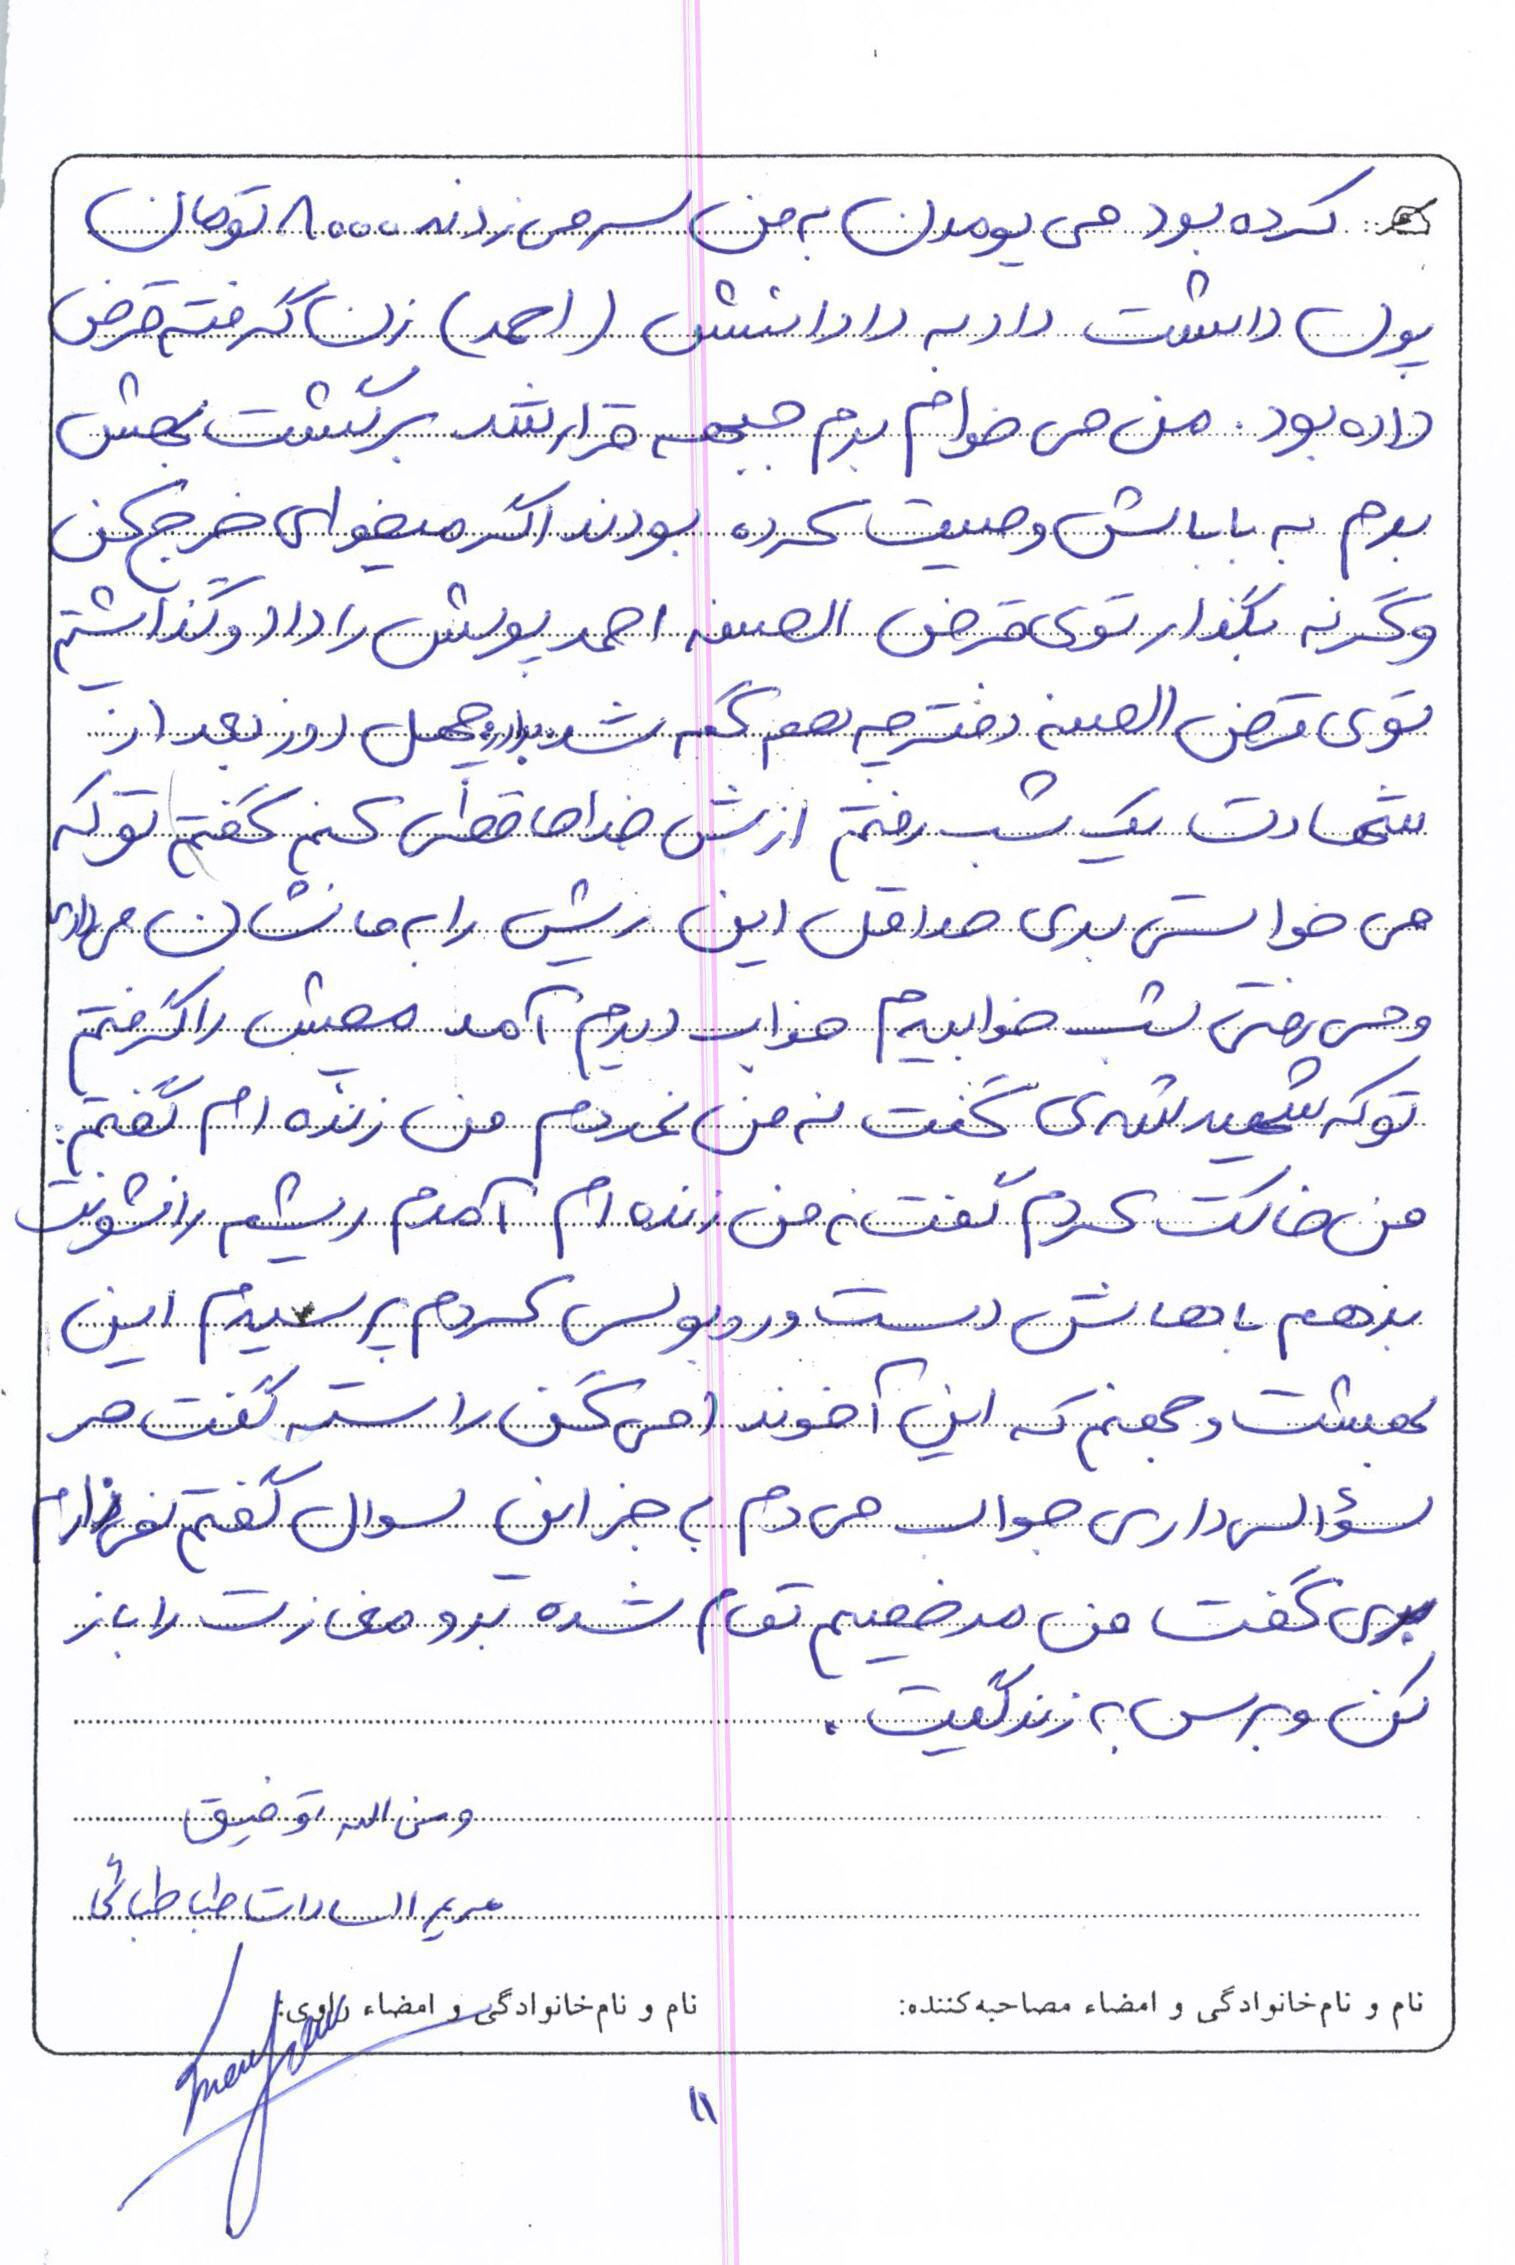 کرده بود می یومدن به من سر می زدنه ۸۰۰۰ تومان
پول داشت داد به داداشش (احمد) زن گرفته قرض
داده بود. من می خوام برم جبهه قرار شد برگشت بهش
بدم به باباش وصیت کرده بودند اگر میخوای خرج کن
وگرنه بگذار توی قرض الحسنه احمد پولش را داد و گذاشتم
توی قرض الحسنه دفترچه هم گم شد چهل روز بعد از
شهادت یک شب رفتم ازش خداحافظی کنم گفتم تو که
می خواستی بری حداقل این ریش را به ما نشان می دادی
و می رفتی شب خوابیدم خواب دیدم آمد مچش را گرفتم
تو که شهید شدی گفت نه من نمردم من زنده ام گفتم:
من خاکت کردم گفت نه من زنده ام آمدم ریشم را نشونت
بدهم باهاش دست و روبوسی کردم پرسیدم این
بهشت و جهنم که این آخوند ا می گن راسته گفت هر
سؤالی داری جواب می دم به جز این سوال گفتم نمی ذارم
بری گفت من مرخصیم تمام شده برو مغازت را باز
کن و برس به زندگیت.
و من الله توفیق
مریم السادات طباطبائی
نام و نام خانوادگی و امضاء مصاحبه کننده: نام و نام خانوادگی و امضاء راوی:
۱۱